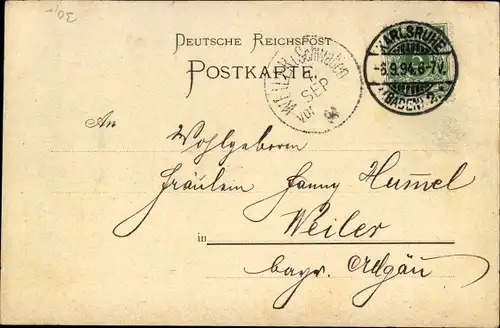 30/-
DEUTSCHE REICHSPOST
POSTKARTE.
KARLSRUHE
-6.9.94.6-7N.
(BADEN) 2.
WEILER i/Schwaben
SEP
Vor
94
An
Wohlgeborn
Fräulein Fanny Hum̄el
in Weiler
bayr. Allgäu